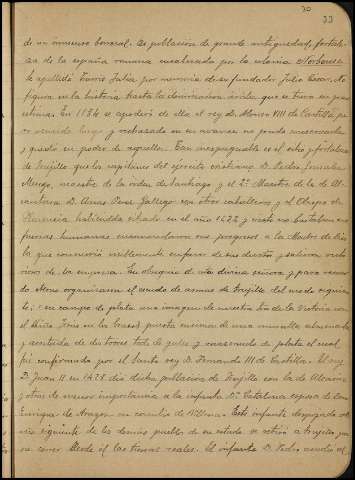 33
de un inmenso berrocal. Es poblacion de grande antiguedad, fortale-
za de la españa romana encabezada por la colonia Norbense
le apellidó Turris Julia por memoria de su fundador Julio Cesar. No
figura en la historia hasta la dominacion árabe que se tuvo en gran
estima. En 1184 se apoderó de ella el rey D. Alonso VIII de Castilla, pe-
ro acudió luego y rechazado en su avance no pudo
y quedó en poder de aquellos. Tan inespugnable es el sitio y fortaleza
de Trujillo que los capitanes del ejército cristiano D. Pedro Gonzalez
Mengo, maestre de la órden de Santiago y el 2º Maestre de la de Al-
cantara D. Arias Perez Gallego con otros caballeros y el Obispo de
Plasencia habiendola sitiado en el año 1232 y visto no bastaban sus
fuerzas humanas encomendaron sus progresos a la Madre de Dios
la que convenia visiblemente en favor de sus devotos y salieron victo-
riosos de la empresa. En obsequio de esta divina señora y para recuer-
do Atono organizaron el escudo de armas de Trujillo del modo siguien-
te: en campo de plata una imagen de nuestra Sra de la Victoria con
el Niño Jesus en los brazos puesta encima de una muralla almenada
y asentida de dos torres todo de gules y mazonado de plata el cual
fué confirmado por el Santo rey D. Fernando III de Castilla. El rey
D. Juan II en 1428 dio dicha poblacion de Trujillo con la de Alcaraz
y otras de menor importancia a la infanta Dª Catalina esposa de Don
Enrique de Aragon en cambio de Villena. Este infante despojado el
año siguiente de los demás pueblos de su estado se retiró a Trujillo, pa-
ra correr desde él las tierras reales. El infante D. Pedro acudió al